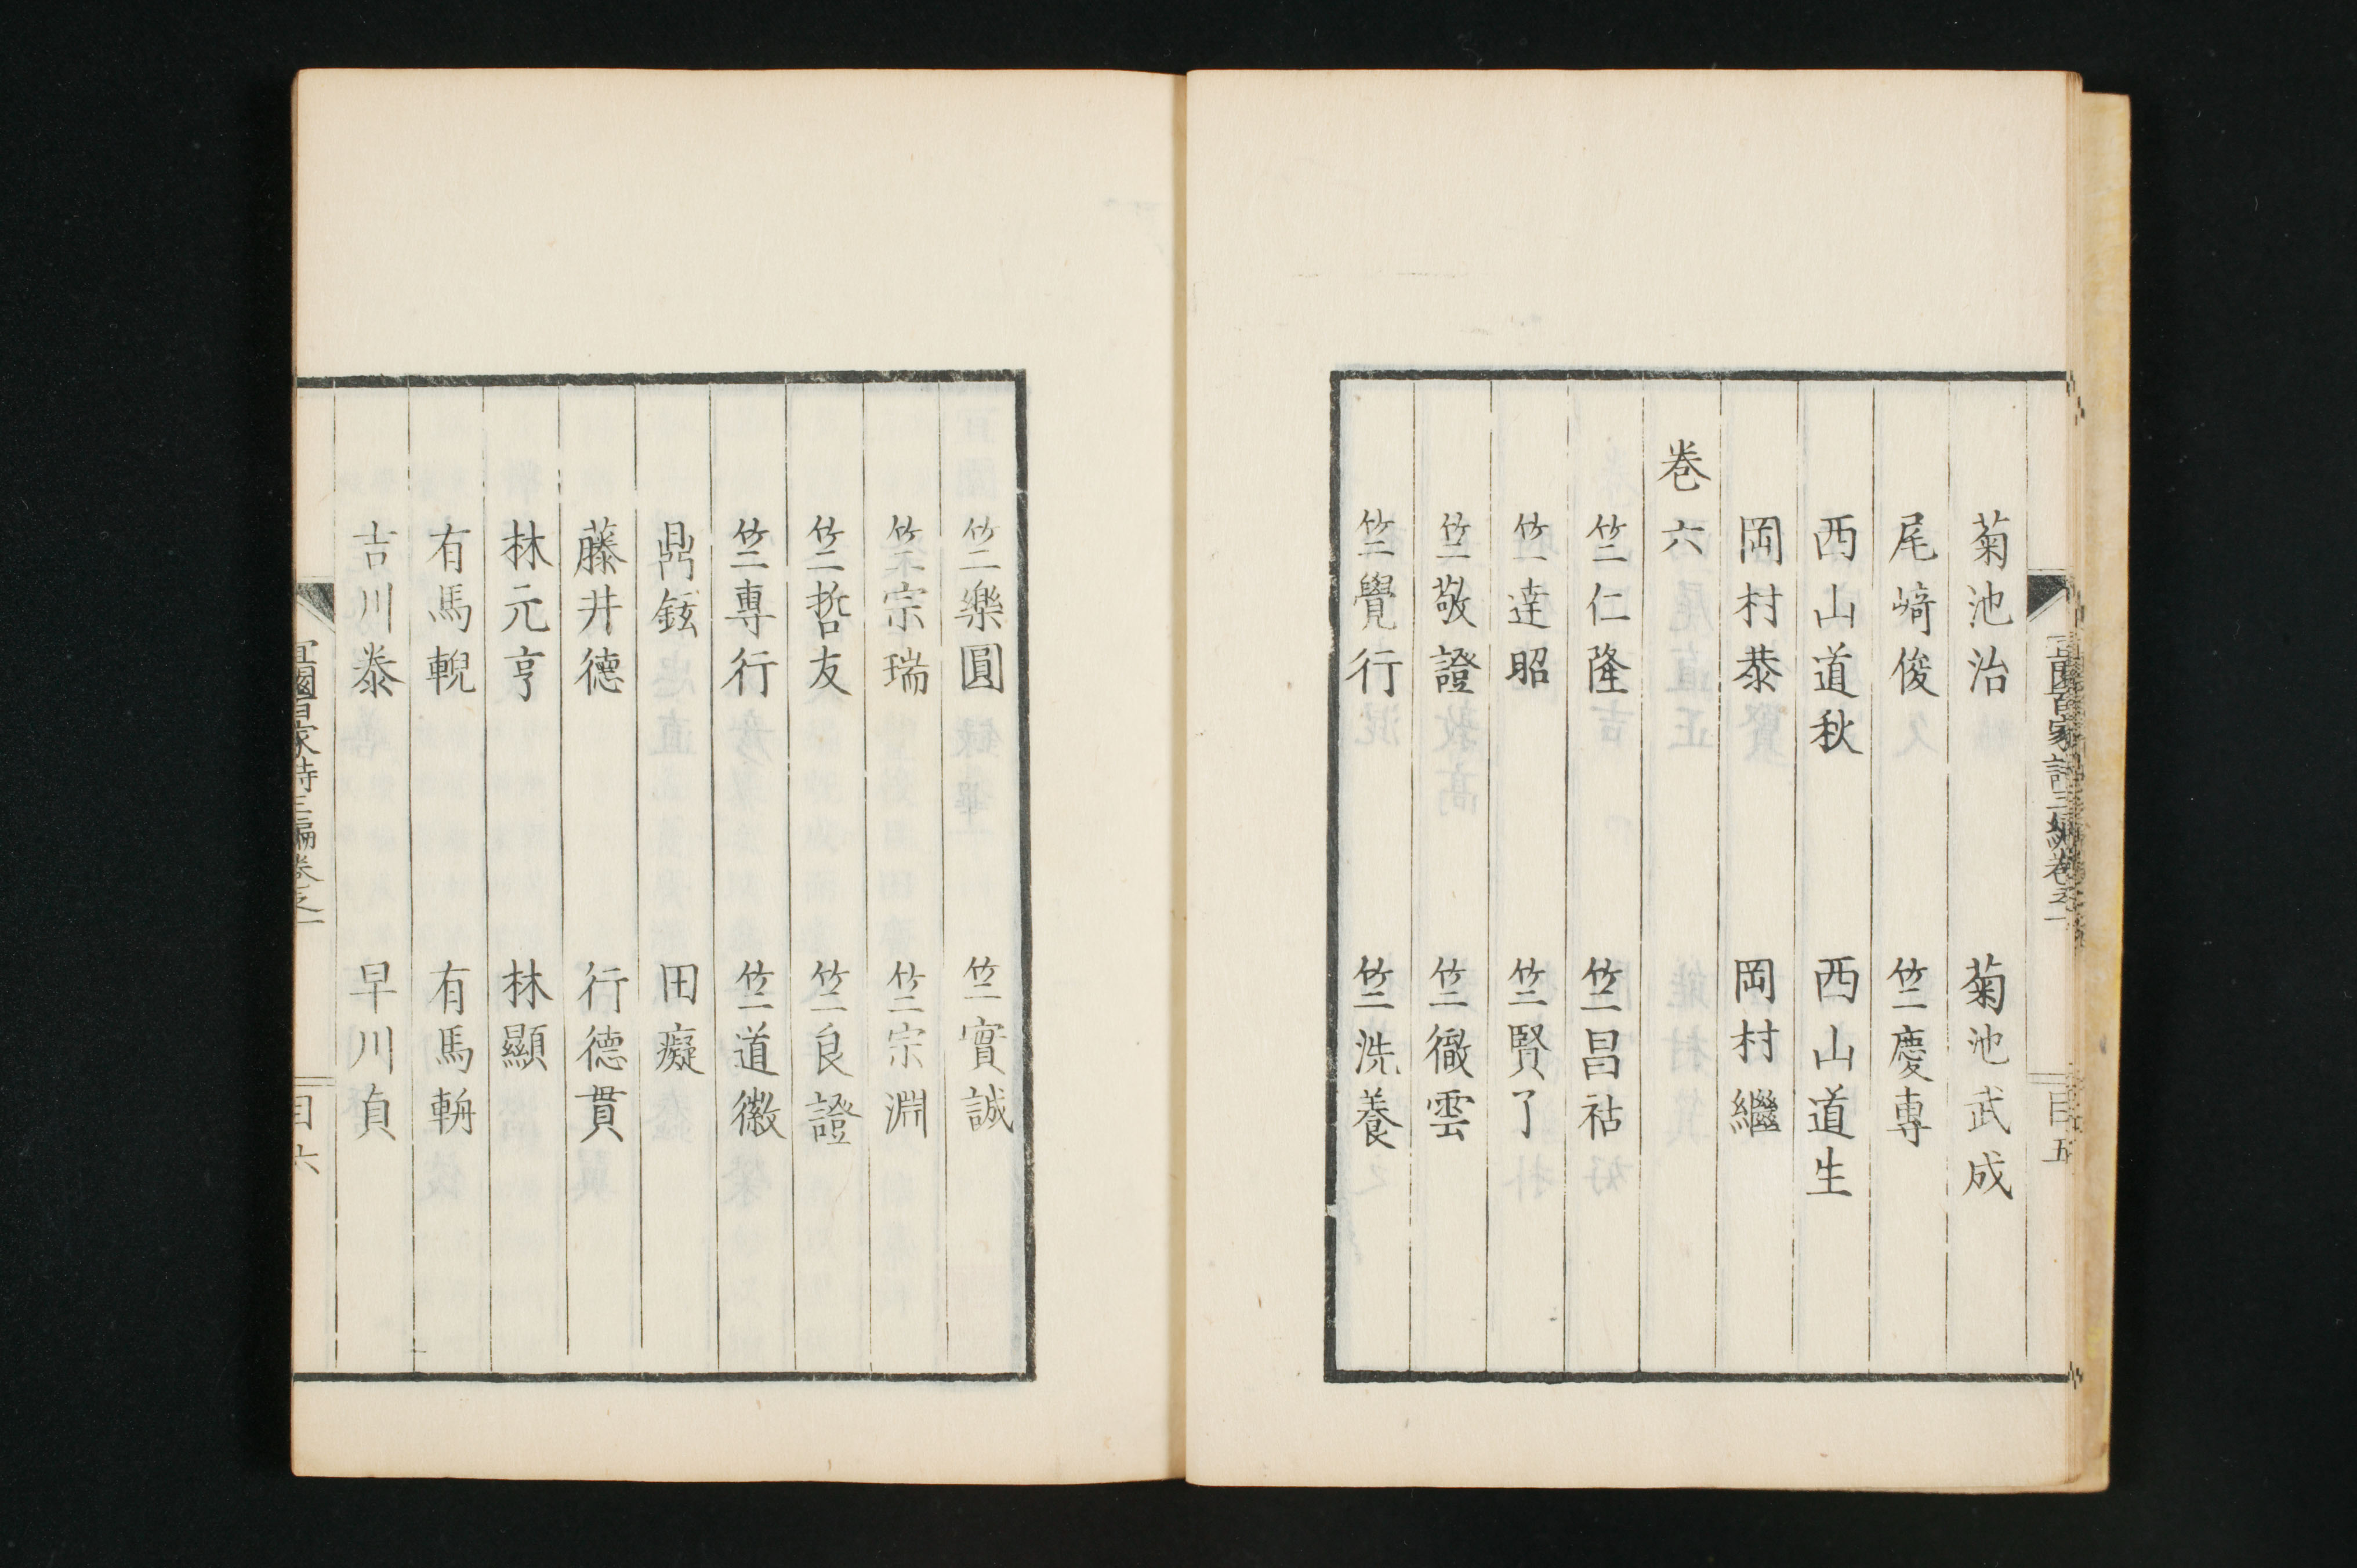 菊池治　菊池武成
尾﨑俊　竺慶專
西山道秋　西山道生
岡村恭　岡村繼
卷六
竺仁隆　竺昌祜
竺達昭　竺賢了
竺敬證　竺徹雲
竺覺行　竺洗養
目五
竺樂圓　竺實誠
竺宗瑞　竺宗淵
竺哲友　竺良證
竺專行　竺道徽
鼎鉉　田癡
藤井德　行德貫
林元亨　林顯
有馬輗　有馬輧
吉川泰　早川貞
宜園百家詩三編卷之一
目六